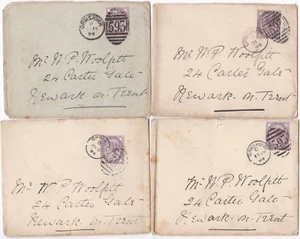 Mr W P Woolfitt
24 Carter Gate
Newark on Trent
Mr W. P. Woolfitt
24 Carter Gate
Newark on Trent
Mr W P Woolfitt
24 Carter Gate
Newark on Trent
Mr W. P. Woolfitt
24 Carter Gate
Newark on Trent